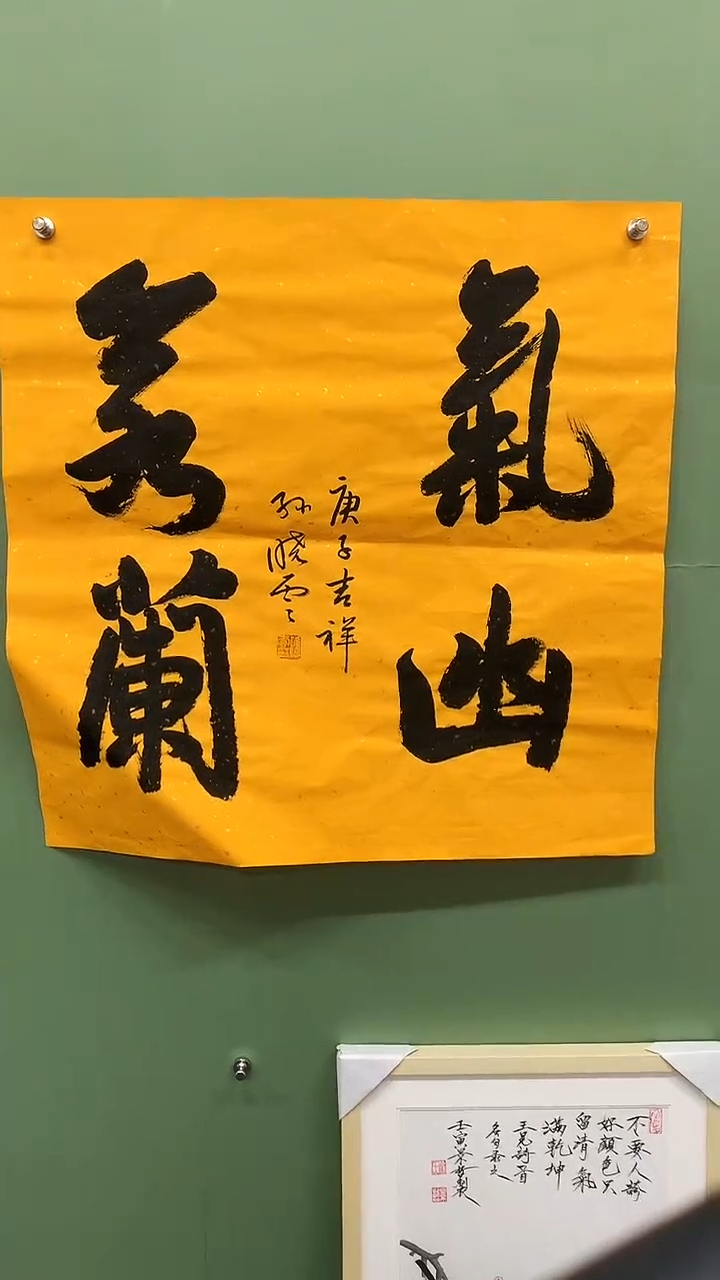 氣幽
若蘭
庚子吉祥
孙晓雲
不要人誇
好顏色只
留清氣
滿乾坤
王冕詩
壬寅